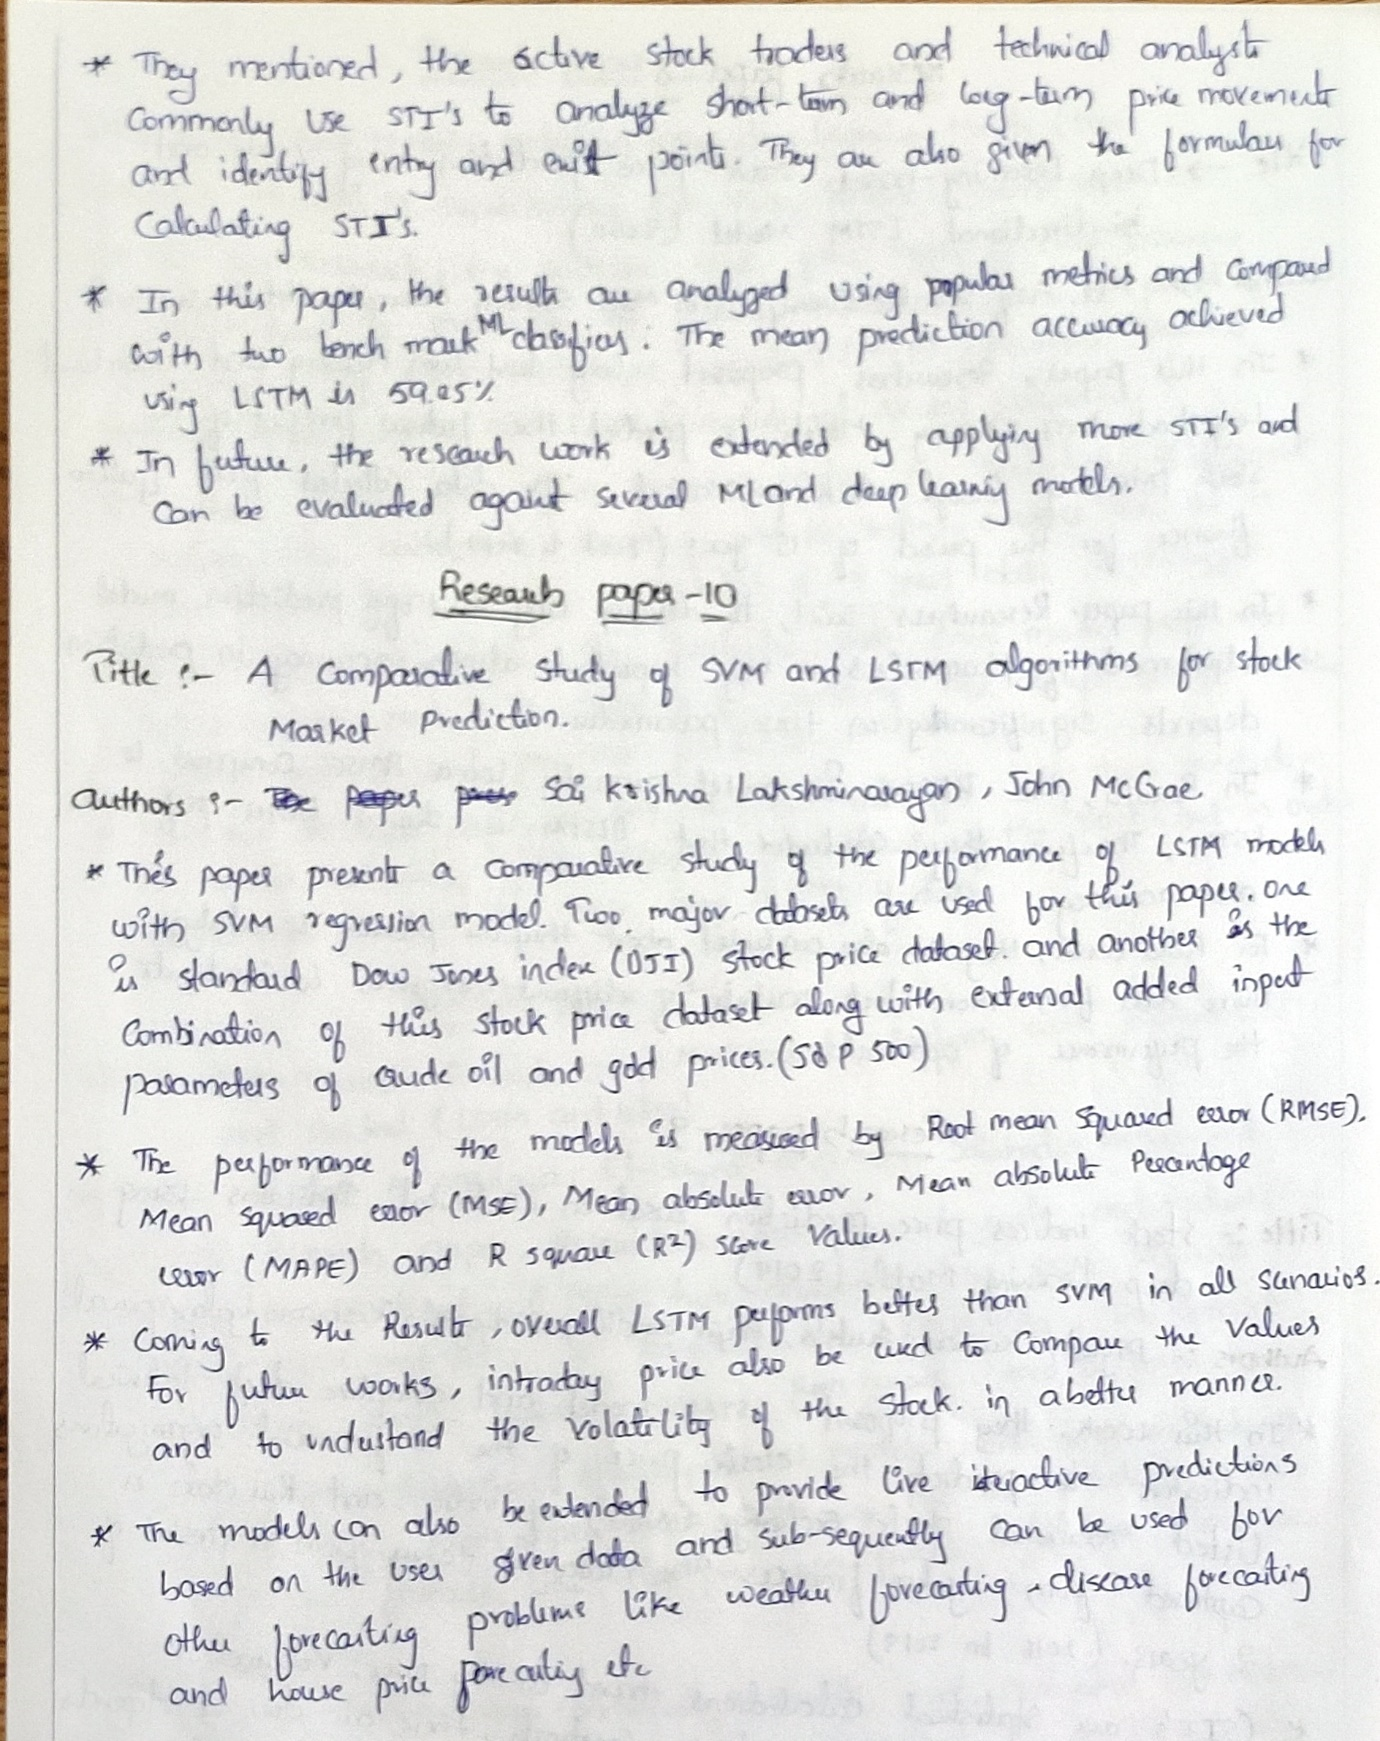 * They mentioned, the active stock traders and technical analysts
Commonly use STI's to analyze short-term and long-term price movements
and identify entry and exit points. They are also given the formulaes for
Calculating STI's.
* In this paper, the results are analyzed using popular metrics and compared
with two bench mark ML classifiers. The mean prediction accuracy achieved
using LSTM is 59.25%
* In future, the research work is extended by applying more STI's and
Can be evaluated against several ML and deep learning models.
Research paper -10
Title :- A Comparative Study of SVM and LSTM algorithms for stock
Market Prediction.
Authors :- The paper Sai krishna Lakshminarayan, John McCrae
* This paper presents a comparative study of the performance of LSTM models
with SVM regression model. Two major datasets are used for this paper. One
is standard Dow Jones index (DJI) stock price dataset. and another is the
Combination of this stock price dataset along with external added input
parameters of crude oil and gold prices. (S&P 500)
* The performance of the models is measured by Root mean squared error (RMSE),
Mean squared error (MSE), Mean absolute error, Mean absolute Percentage
error (MAPE) and R square (R²) score values.
* Coming to the Results, overall LSTM performs better than SVM in all scenarios.
For future works, intraday price also be used to Compare the values
and to understand the volatility of the stock. in a better manner.
* The models can also be extended to provide live iteractive predictions
based on the user given data and sub-sequently can be used for
other forecasting problems like weather forecasting, disease forecasting
and house price forecasting etc